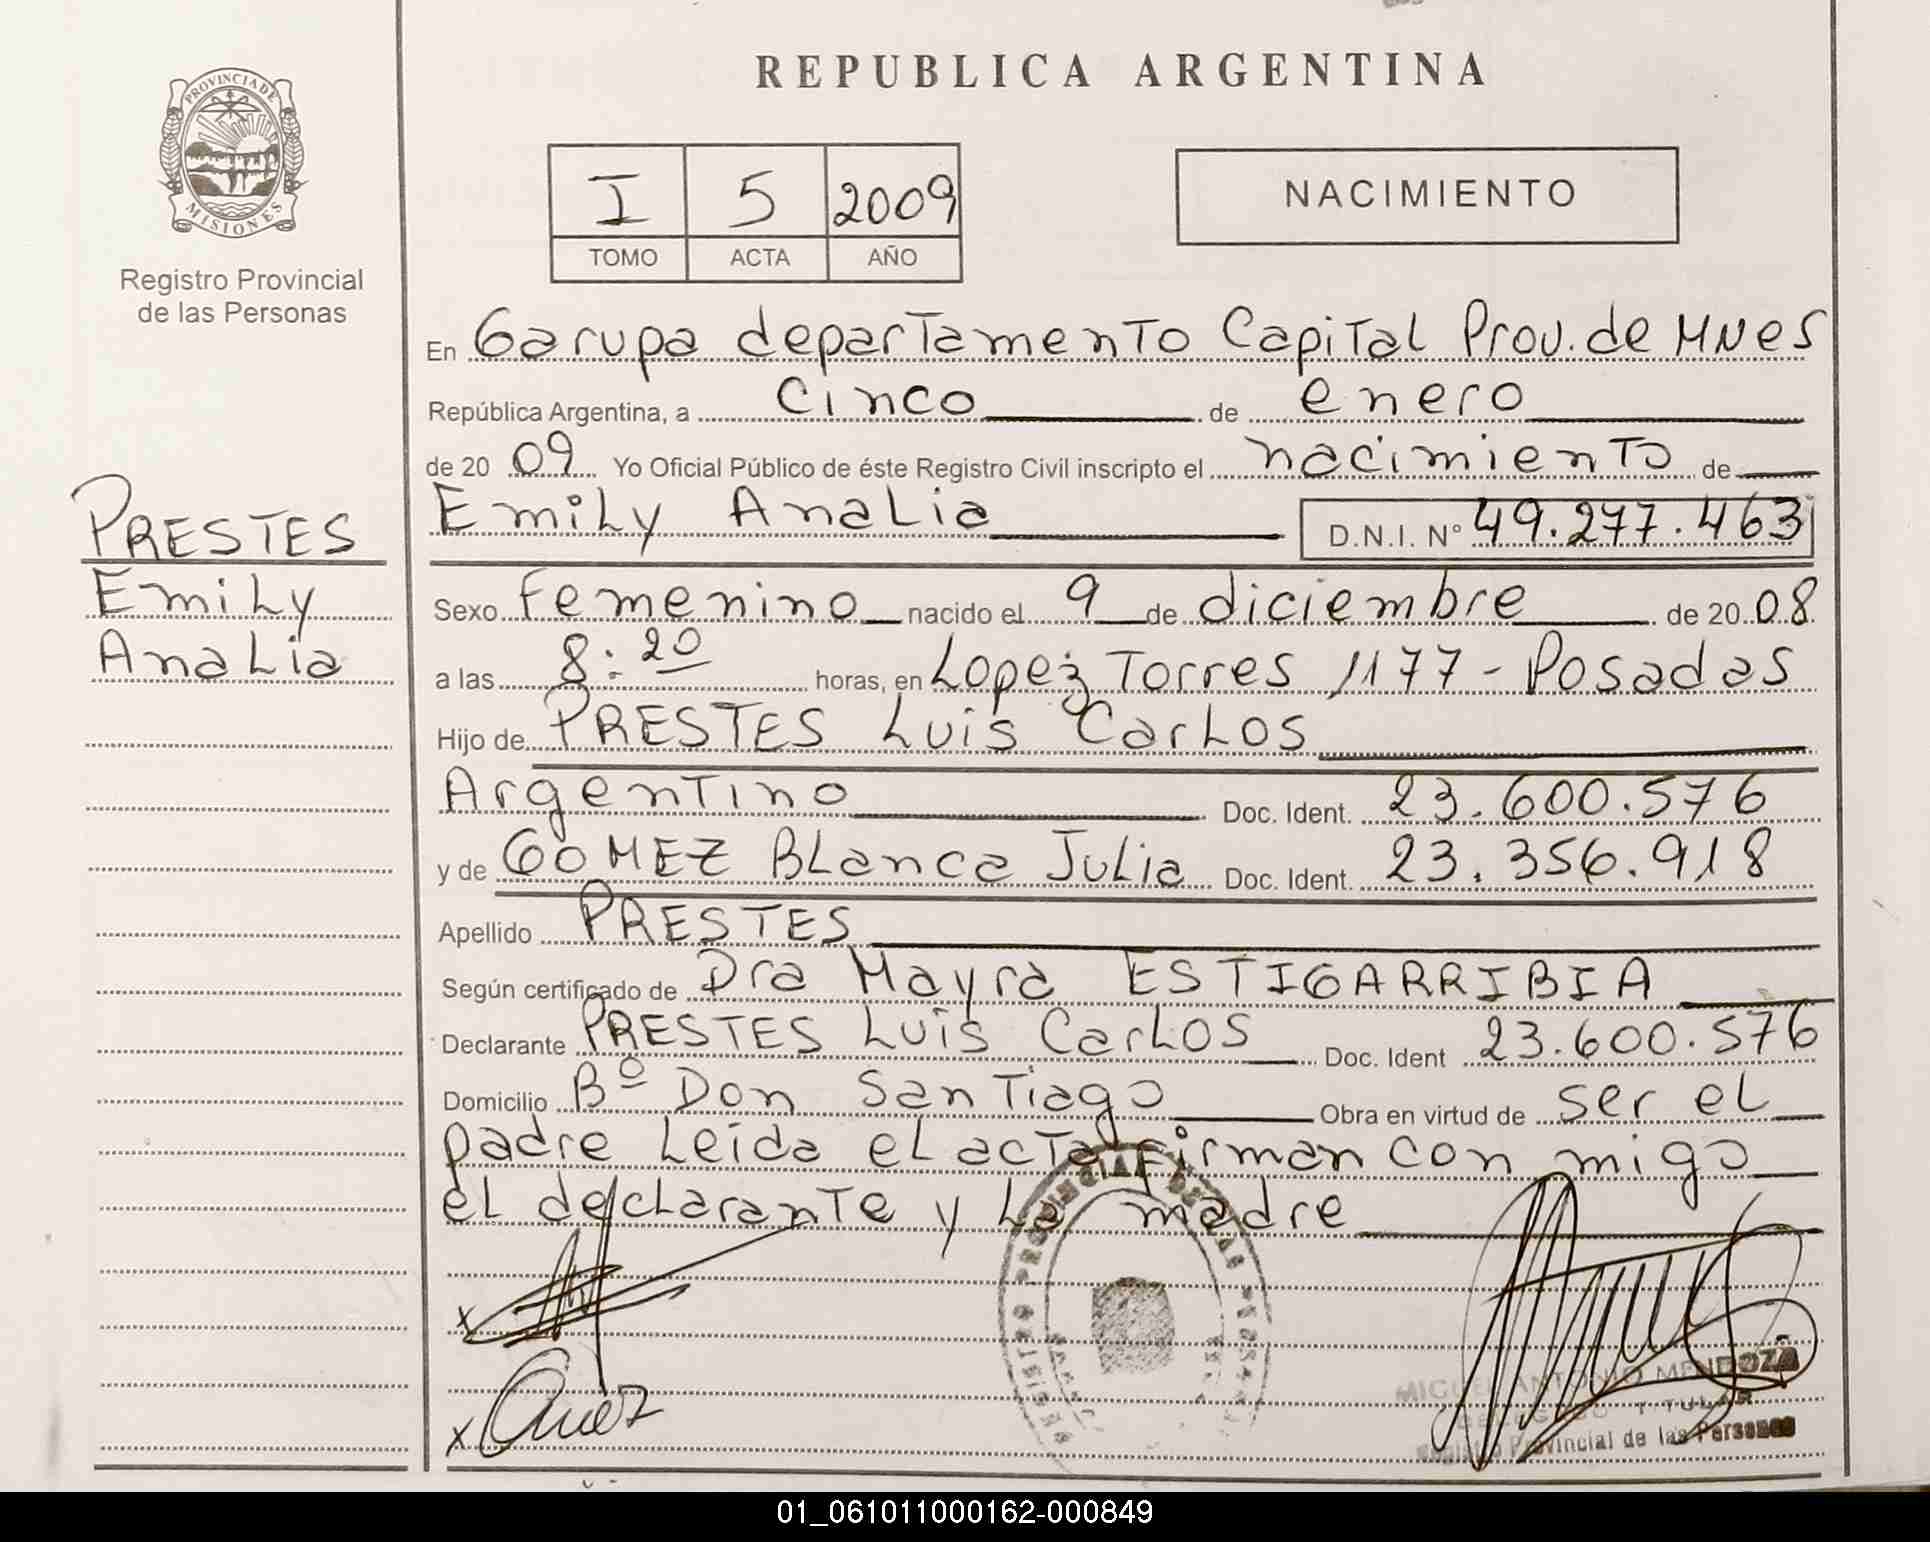 REPUBLICA ARGENTINA
PROVINCIA DE
MISIONES
Registro Provincial
de las Personas
I 5 2009
TOMO ACTA AÑO
NACIMIENTO
En Garupa departamento Capital Prov. de MNes
República Argentina, a cinco de enero
de 20 09 Yo Oficial Público de éste Registro Civil inscripto el nacimiento de
Emily Analia D.N.I. Nº 49.277.463
PRESTES
Emily
Analia
Sexo Femenino nacido el 9 de diciembre de 20 08
a las 8:20 horas, en Lopez Torres 1177 - Posadas
Hijo de PRESTES Luis Carlos
Argentino Doc. Ident. 23.600.576
y de GOMEZ Blanca Julia Doc. Ident. 23.356.918
Apellido PRESTES
Según certificado de Dra Mayra ESTIGARRIBIA
Declarante PRESTES Luis Carlos Doc. Ident 23.600.576
Domicilio Bº Don Santiago Obra en virtud de ser el
padre Leida el acta firman con migo
el declarante y la madre
REGISTRO PROVINCIAL DE LAS PERSONAS
MIGUEL ANTONIO MENDOZA
DELEGADO TITULAR
Registro Provincial de las Personas
01_061011000162-000849